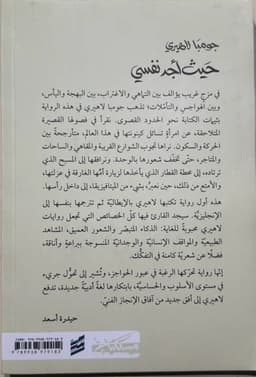 جومبا لاهيري
حيث أجد نفسي
في مزج غريب يؤالف بين التماهي والاغتراب، بين البهجة واليأس،
وبين الهواجس والتأملات؛ تذهب جومبا لاهيري في هذه الرواية
بثيمات الكتابة نحو الحدود القصوى. نقرأ في فصولها القصيرة
المتلاحقة، عن امرأة تسائل كينونتها في هذا العالم، متأرجحة بين
الحركة والسكون. نراها تجوب الشوارع القريبة والمقاهي والساحات
والمتاجر، حتى تخفف شعورها بالوحدة. ونرافقها إلى المسبح الذي
ترتاده، إلى محطة القطار الذي يأخذها لزيارة أمها الغارقة في عزلتها،
والأمتع من ذلك، حين نعبر، بشيء من الميتافيزيقا، إلى داخل رأسها.
هذه أول رواية تكتبها لاهيري بالإيطالية ثم تترجمها بنفسها إلى
الإنجليزية. سيجد القارئ فيها كل الخصائص التي تجعل روايات
لاهيري محبوبة للغاية: الذكاء المتبصر والشعور العميق، المشاهد
الطبيعية والمواقف الإنسانية والوجدانية المنسوجة ببراعة وأناقة،
فضلًا عن شعرية كامنة في التفكك.
إنها رواية تحركها الرغبة في عبور الحواجز، وتُشير إلى تحول جريء
في مستوى الأسلوب والحساسية، بابتكارها لغة أدبية جديدة، تدفع
لاهيري إلى أفق جديد من آفاق الإنجاز الفني.
حيدرة أسعد